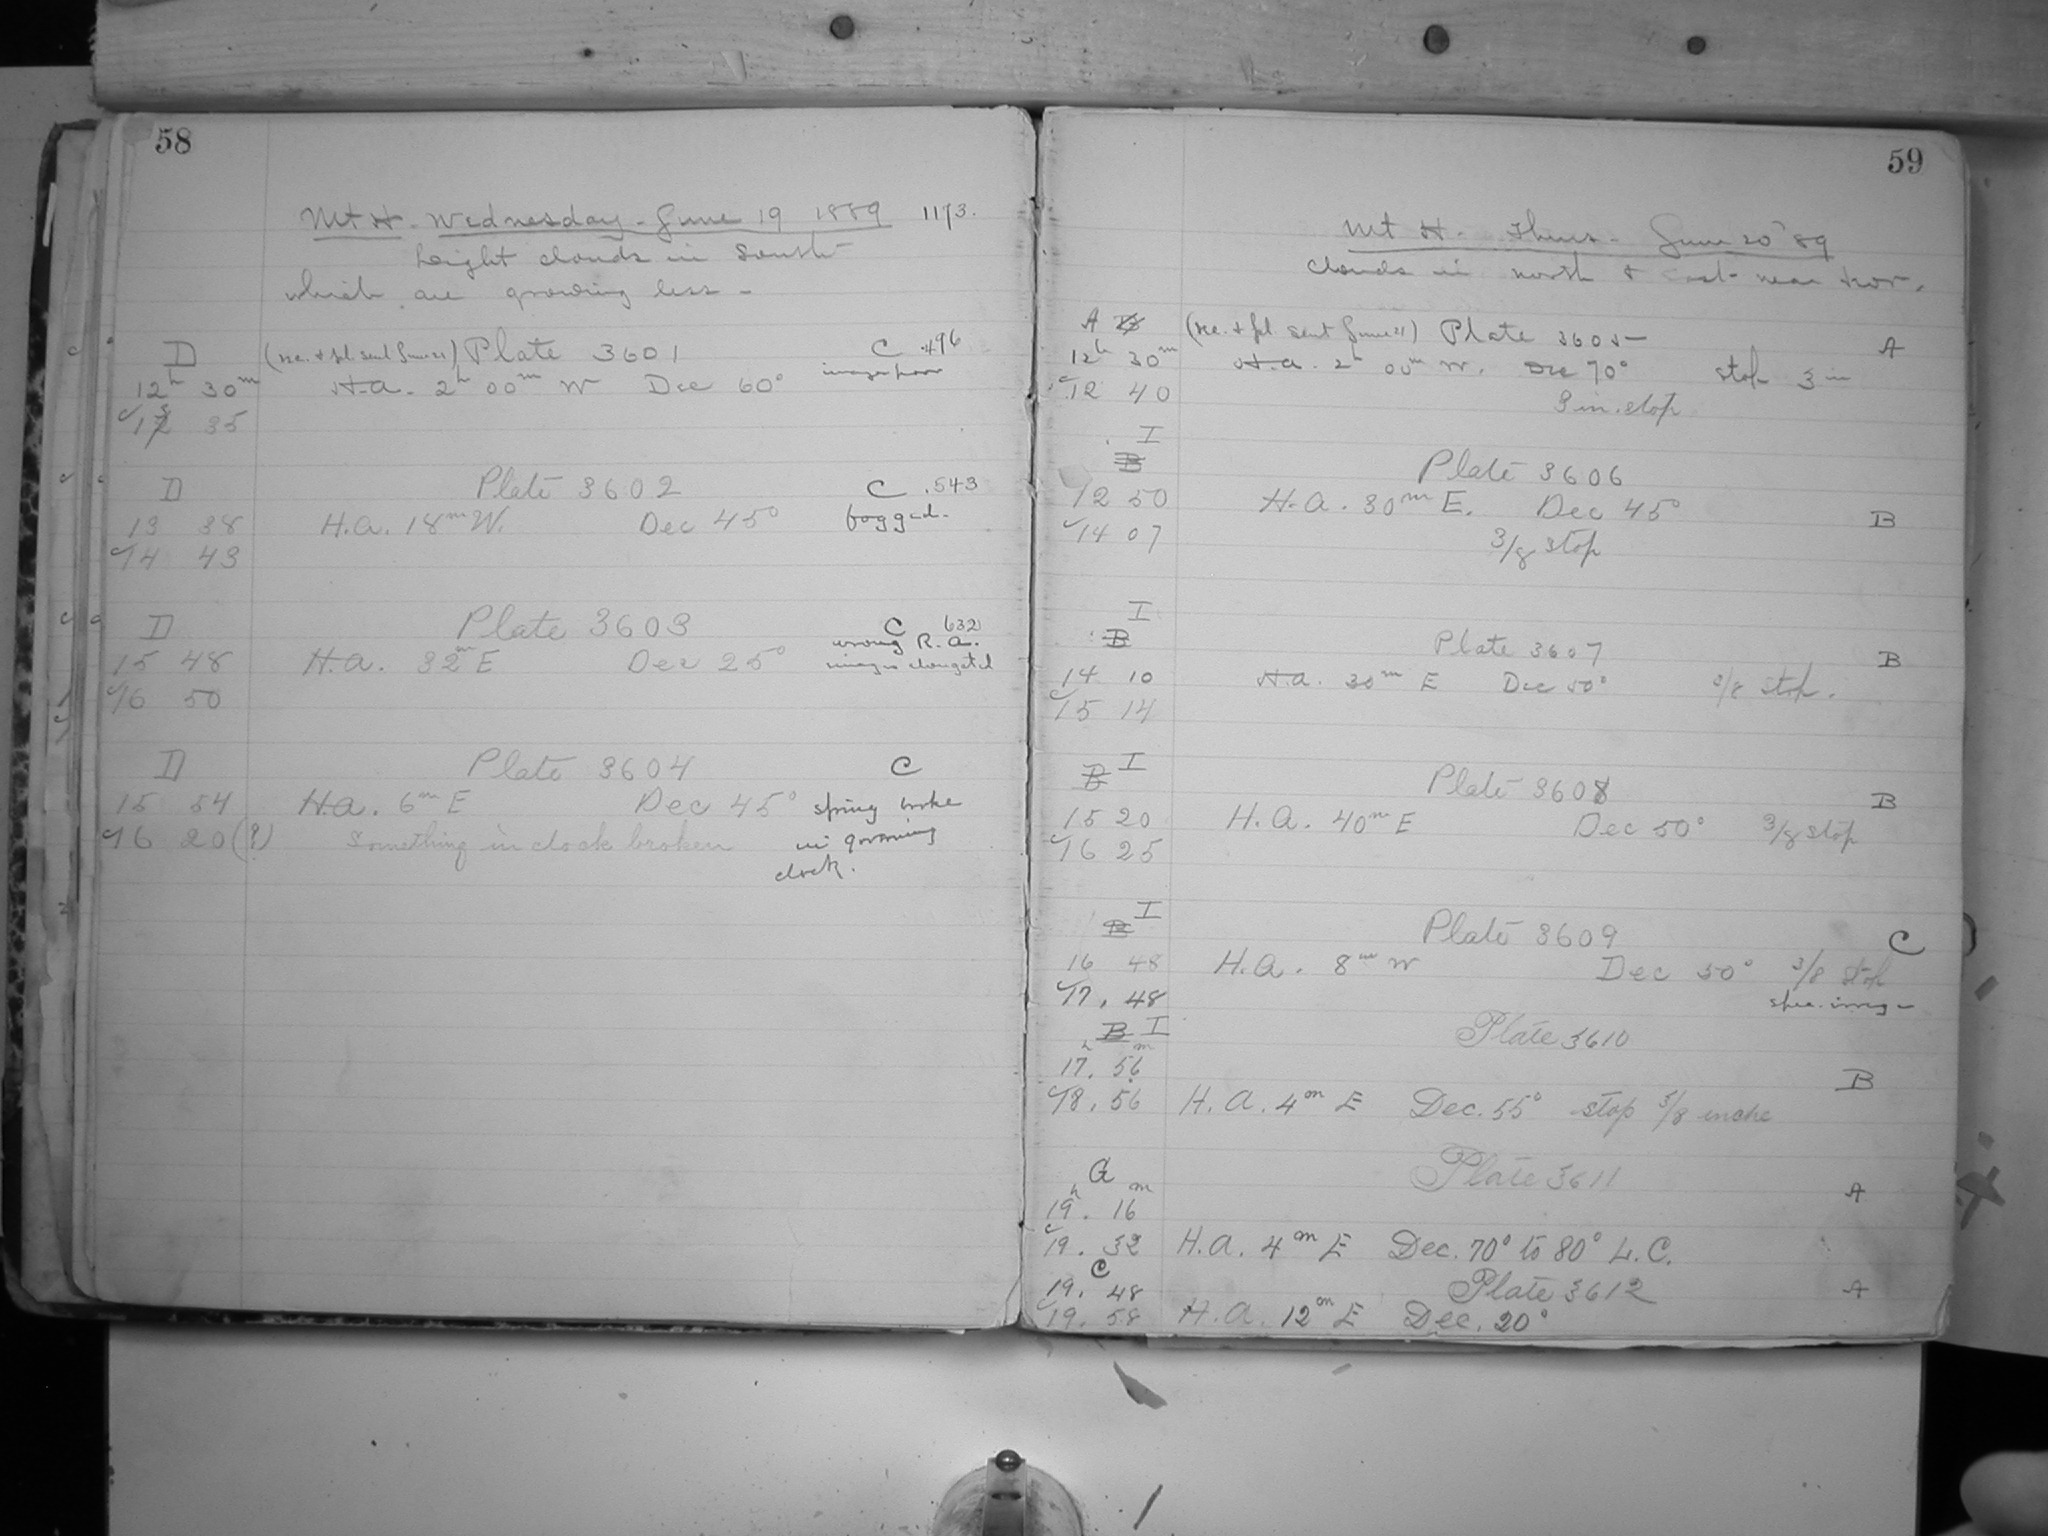 58
Mt H - Wednesday - June 19 1889 1173.
Light clouds in South
which are growing less -
D (rec. & pl. sent June 21) Plate 3601 C .496
12h 30m H.A. 2h 00m W Dec 60° images poor
13 35
D Plate 3602 C .543
13 38 H.A. 18m W. Dec 45° fogged.
14 43
D Plate 3603 C 632
wrong R.A.
15 48 H.A. 32m E Dec 25° images elongated
16 50
D Plate 3604 C
15 54 H.A. 6m E Dec 45° spring broke
16 20 (?) Something in clock broken in
clock.
59
Mt H - Thurs - June 20 '89
Clouds in north & east near hor.
A B (rec. & pl. sent June 21) Plate 3605 A
12h 30m H.A. 2h 00m W. Dec 70° stop 3 in
12 40 3 in. stop
I
B Plate 3606
12 50 H.A. 30m E. Dec 45° B
14 07 3/8 stop
I
B Plate 3607 B
14 10 H.A. 30m E Dec 50° 3/8 stop.
15 14
I
B Plate 3608 B
15 20 H.A. 40m E Dec 50° 3/8 stop
16 25
I
B Plate 3609 C
16 48 H.A. 8m W Dec 30° 3/8 stop
17. 48
B I Plate 3610
17h. 56m B
18. 56 H.A. 4m E Dec. 55° stop 3/8 inche
G Plate 3611
19h. 16m A
19. 32 H.A. 4m E Dec. 70° to 80° L.C.
C
19. 48 Plate 3612 A
19. 58 H.A. 12m E Dec. 20°